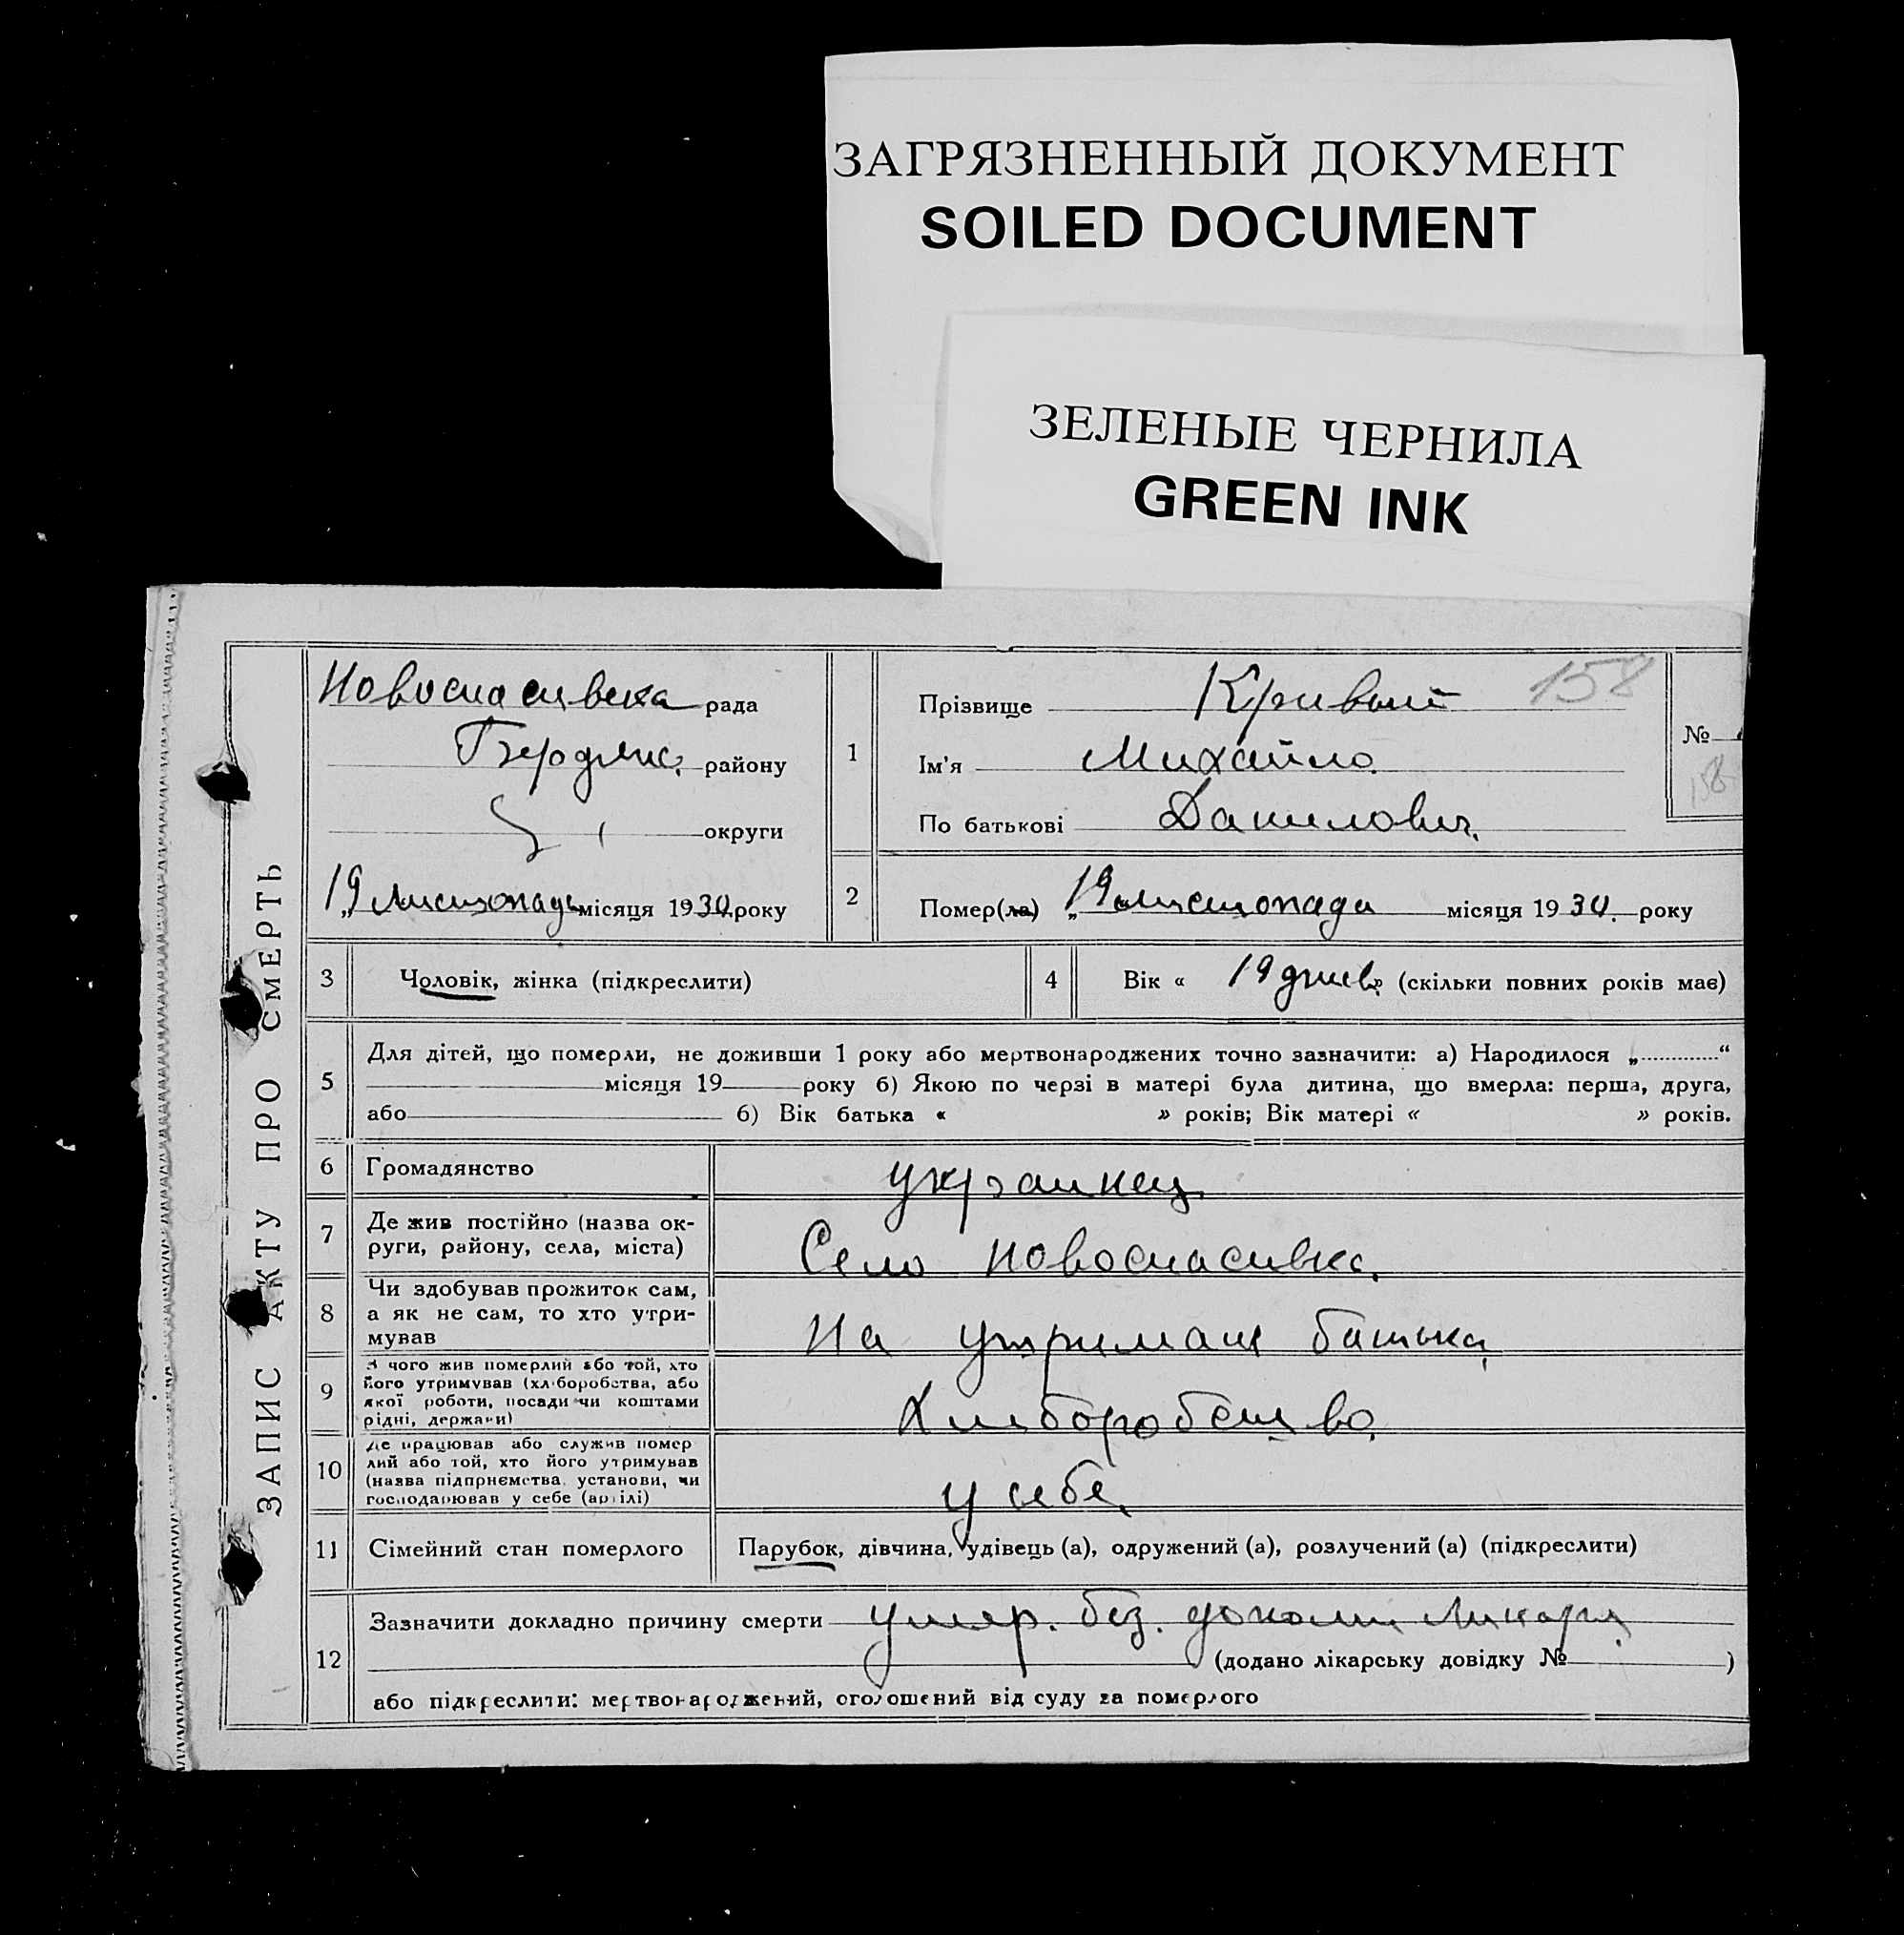 ЗАГРЯЗНЕННЫЙ ДОКУМЕНТ
SOILED DOCUMENT
ЗЕЛЕНЫЕ ЧЕРНИЛА
GREEN INK
ЗАПИС АКТУ ПРО СМЕРТЬ
Новоспасивска рада
Бердянс. району
округи
19 Листопада місяця 1930 року
1
Прізвище Кривый 158
Ім'я Михайло
По батькові Данилович
№
158
2
Помер(ла) „19 листопада місяця 1930. року
3 Чоловік, жінка (підкреслити)
4 Вік « 19 днив » (скільки повних років має)
5
Для дітей, що померли, не доживши 1 року або мертвонароджених точно зазначити: а) Народилося „ “
місяця 19 року б) Якою по черзі в матері була дитина, що вмерла: перша, друга,
або б) Вік батька « » років; Вік матері « » років.
6 Громадянство украинец
7 Де жив постійно (назва ок-
руги, району, села, міста)
Село Новоспасивка.
8 Чи здобував прожиток сам,
а як не сам, то хто утри-
мував
На утримані батька
9 З чого жив померлий або той, хто
його утримував (хліборобства, або
якої роботи, посади чи коштами
рідні, держави)
Хлиборобство
10 Де працював або служив помер
лий або той, хто його утримував
(назва підприємства, установи, чи
господарював у себе (артілі)
у себе
11 Сімейний стан померлого Парубок, дівчина, удівець (а), одружений (а), розлучений (а) (підкреслити)
12
Зазначити докладно причину смерти умер. без. допоми Ликаря
(додано лікарську довідку № )
або підкреслити: мертвонароджений, оголошений від суду за померлого